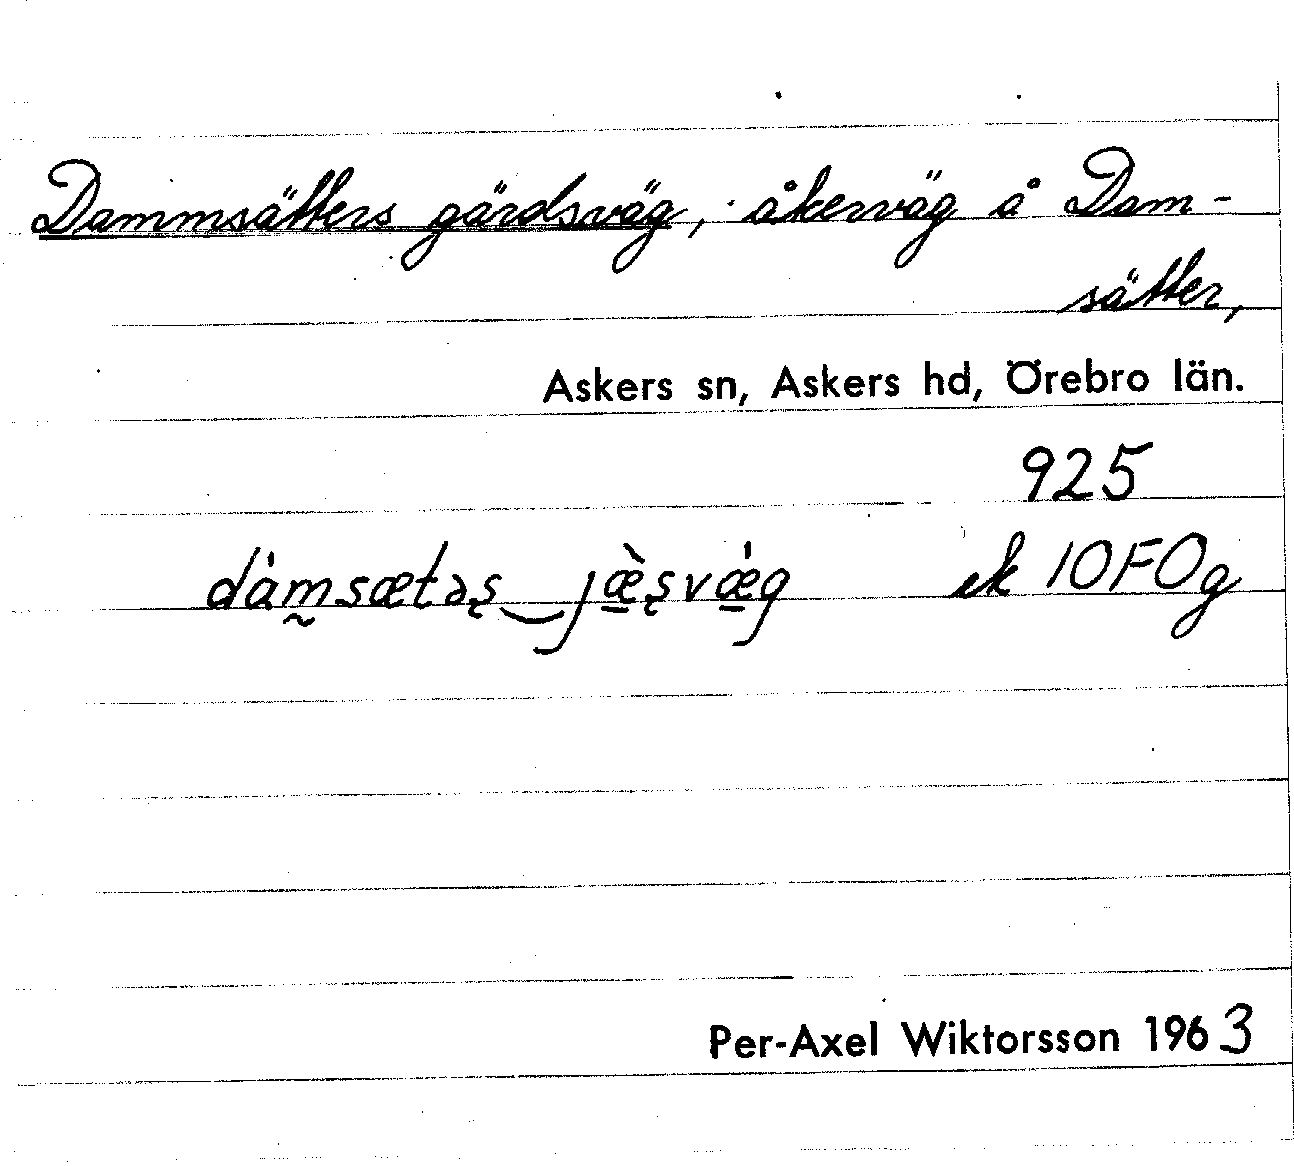 Dammsätters gärdsväg, åkerväg å Dam-
sätter,
Askers sn, Askers hd, Örebro län.
925
dàm̰sætəş‿jæ̱̀şvǽ̱g ek 10F0g
Per-Axel Wiktorsson 1963